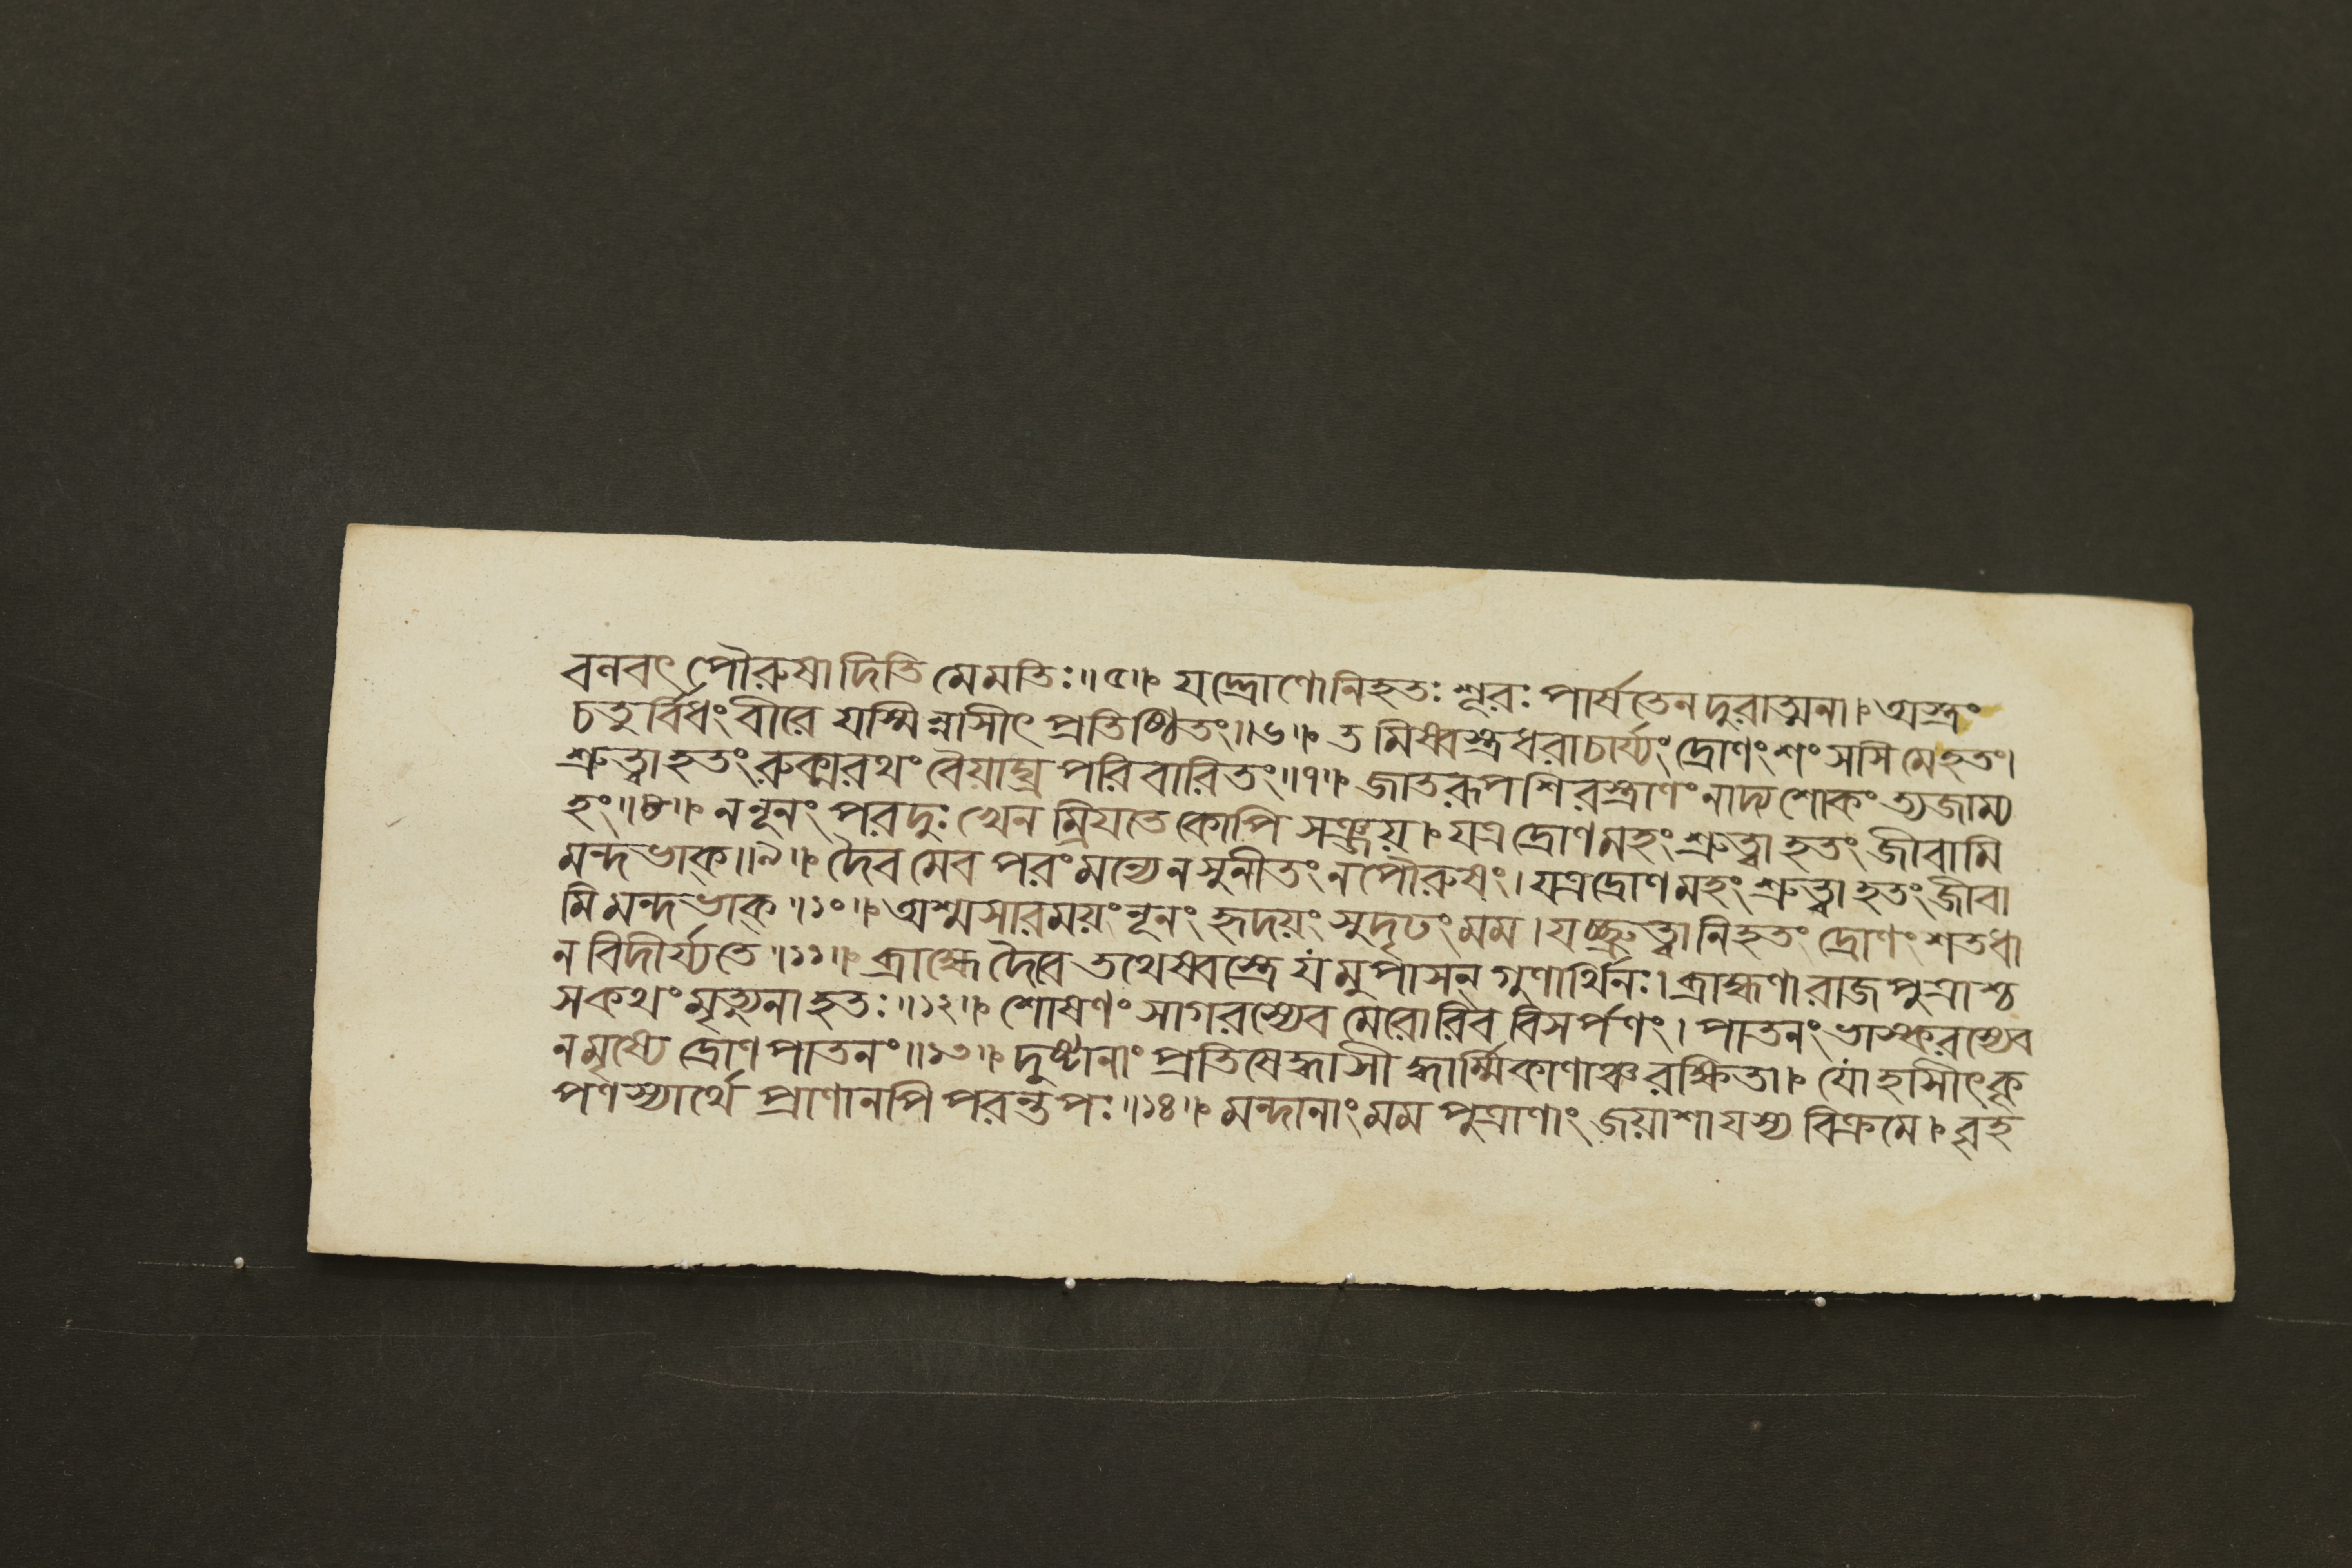 বণবৎ পৌরুষাদিতি মেমতিঃ॥৫॥ যদ্দ্রোণোনিহতঃ শূরঃ পার্ষতেনদুরাত্মনা। অস্ত্রং
চতুর্বিধংবীরে যস্মিন্নাসীৎ প্রতিষ্ঠিতং॥৬॥ তমিষ্বস্ত্রধরাচার্য্যং দ্রোণংশংসসি মেহতং।
শ্রুত্বাহতংরুক্মরথং বৈয়াঘ্র পরিবারিতং॥৭॥ জাতরূপশিরস্ত্রাণং নাদ্যশোকং ত্যজাম্য
হং॥৮॥ নন্নূনং পরদুঃখেন ম্রিযতে কোপি সঞ্জয়। যত্র দ্রোণমহং শ্রুত্বা হতং জীবামি
মন্দভাক্॥৯॥ দৈবমেব পরংমন্যেনসুনীতং নপৌরুষং। যত্রদ্রোণমহং শ্রুত্বা হতং জীবা
মি মন্দভাক্॥১০॥ অশ্মসারময়ং নূনং হৃদয়ং সুদৃঢংমম। যচ্ছ্রুত্বানিহতং দ্রোণং শতধা
ন বিদীর্য্যতে॥১১॥ ব্রাহ্মে দৈবে তথেষ্বস্ত্রে যমুপাসন্ গুণার্থিনঃ। ব্রাহ্মণারাজপুত্রাশ্চ
সকথং মৃত্যুনাহৃতঃ॥১২॥ শোষণং সাগরস্যেব মেরোরিব বিসর্পণং। পাতনং ভাস্করস্যেব
নমৃষ্যে দ্রোণপাতনং॥১৩॥ দুষ্টানাং প্রতিষেদ্ধাসী দ্ধার্ম্মিকাণাঞ্চরক্ষিতা। যোহাসীৎকৃ
পণস্যার্থে প্রাণানপি পরন্তপঃ॥১৪॥ মন্দানাংমম পুত্রাণাং জয়াশা যস্য বিক্রমে। বৃহ